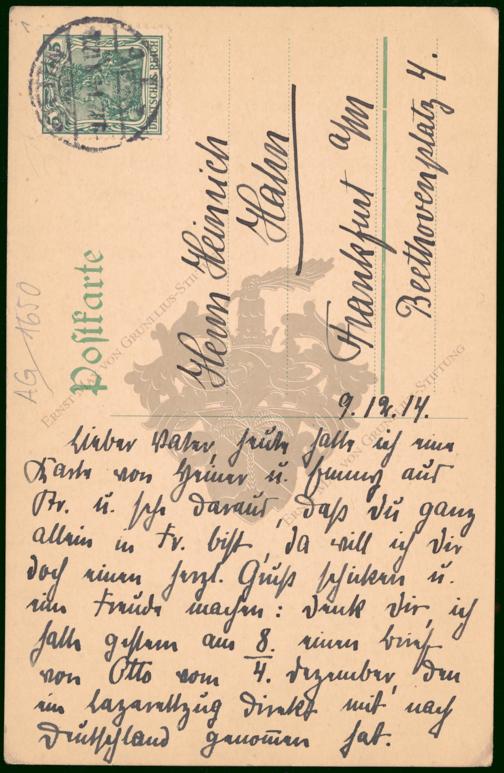 DEUTSCHES REICH
5
Postkarte
AG 1650
Herrn Heinrich
Hahn
Frankfurt a/M
Beethovenplatz 4.
ERNST MAX VON GRUNELIUS-STIFTUNG
ERNST MAX VON GRUNELIUS-STIFTUNG
9.12.14.
Lieber Vater, heute hatte ich eine
Karte von Heiner u. Emmy aus
Br. u. sehe daraus, daß Du ganz
allein in Fr. bist, da will ich Dir
doch einen herzl. Gruß schicken u.
eine Freude machen: denk Dir, ich
hatte gestern am 8. einen Brief
von Otto vom 4. Dezember, den
ein Lazarettzug direkt mit nach
Deutschland genommen hat.